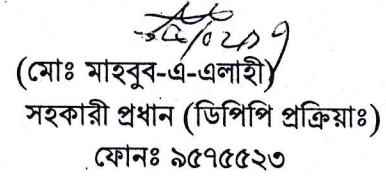 (মোঃ মাহবুব-এ-এলাহী)
সহকারী প্রধান (ডিপিপি প্রক্রিয়াঃ)
ফোনঃ ৯৫৭৫৫২৩